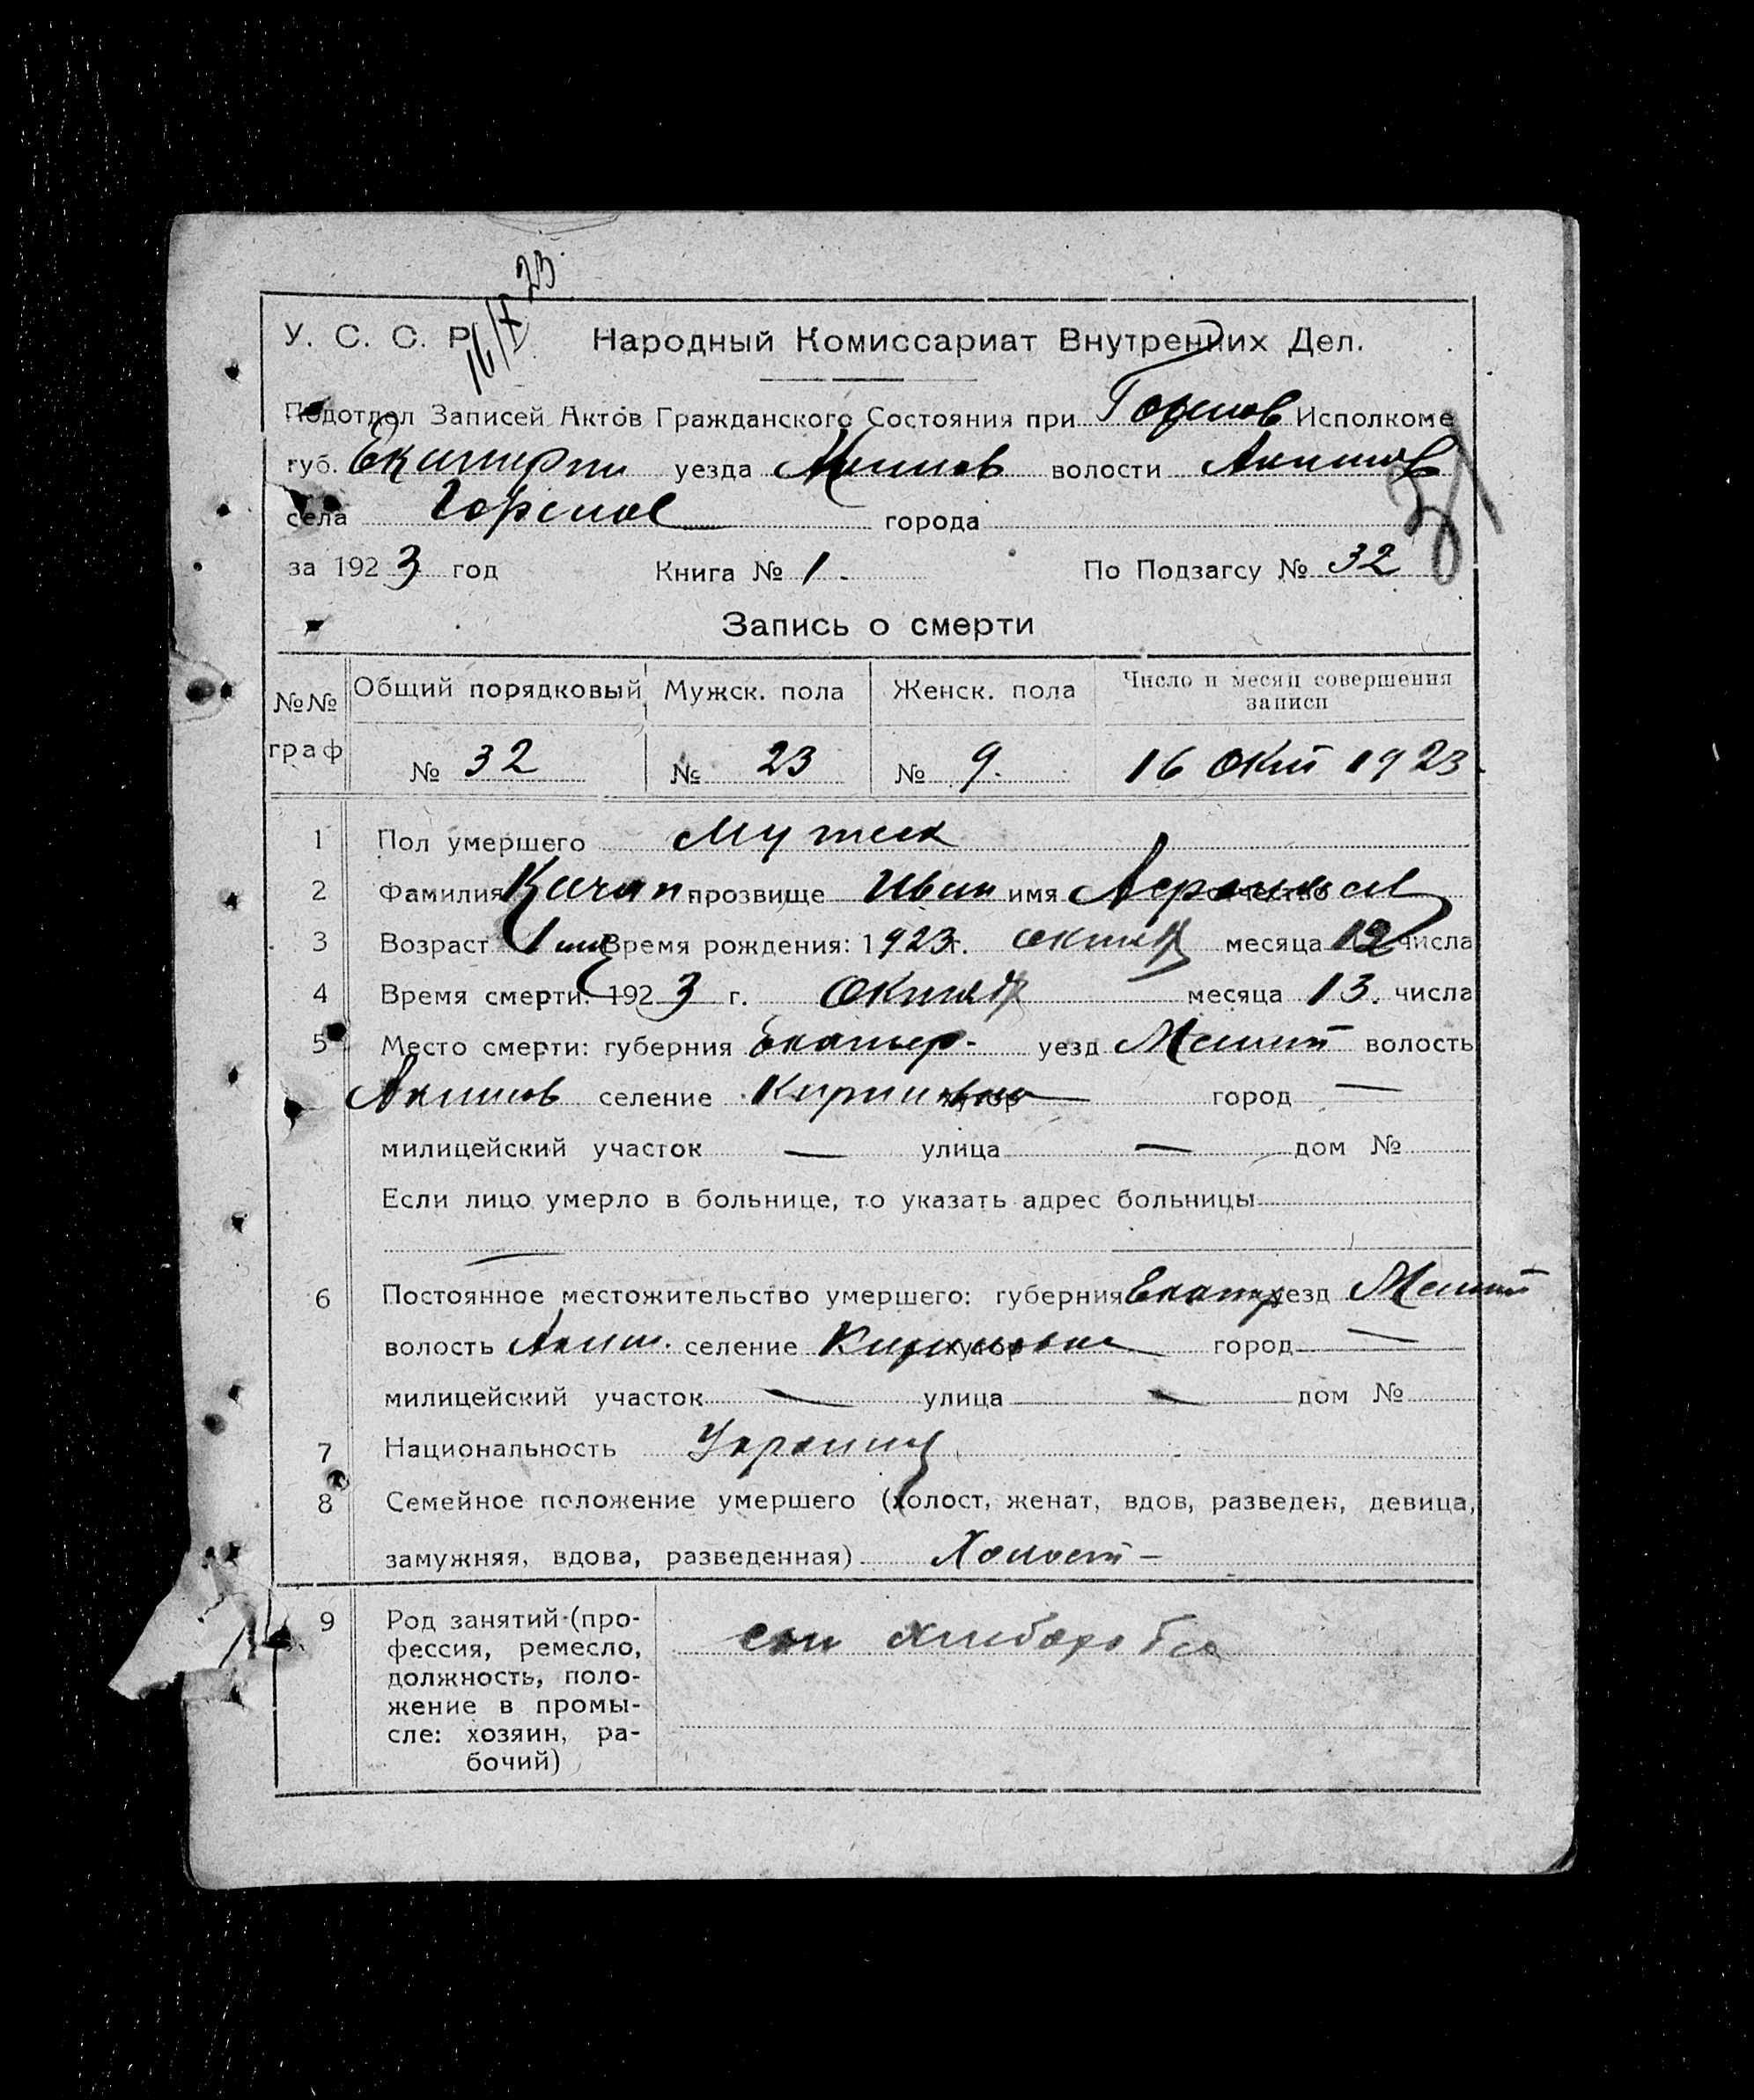 16/X 23
У. С. С. Р. Народный Комиссариат Внутренних Дел.
Подотдел Записей Актов Гражданского Состояния при Исполкоме
губ. уезда волости Акимов
села города
за 1923 год Книга № 1. По Подзагсу № 32
Запись о смерти
№№ граф Общий порядковый Мужск. пола Женск. пола Число и месяц совершения записи
№ 32 № 23 № 9. 16 окт 1923
1 Пол умершего Мужск
2 Фамилия Качан прозвище Иван имя отчество
3 Возраст 1 Время рождения: 1923 г. октяб месяца 12 числа
4 Время смерти: 1923 г. октяб месяца 13. числа
5 Место смерти: губерния Екатер. уезд Мелит волость
Акимов селение хутор город —
милицейский участок — улица — дом №
Если лицо умерло в больнице, то указать адрес больницы
—
6 Постоянное местожительство умершего: губерния Екатер уезд Мелит
волость Аким. селение хутор город —
милицейский участок — улица — дом №
7 Национальность Украинц
8 Семейное положение умершего (холост, женат, вдов, разведен, девица,
замужняя, вдова, разведенная) Холост —
9 Род занятий (про-
фессия, ремесло,
должность, поло-
жение в промы-
сле: хозяин, ра-
бочий)
сын хлебороба